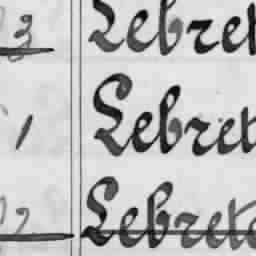 3 Lebret
1 Lebret
2 Lebrete